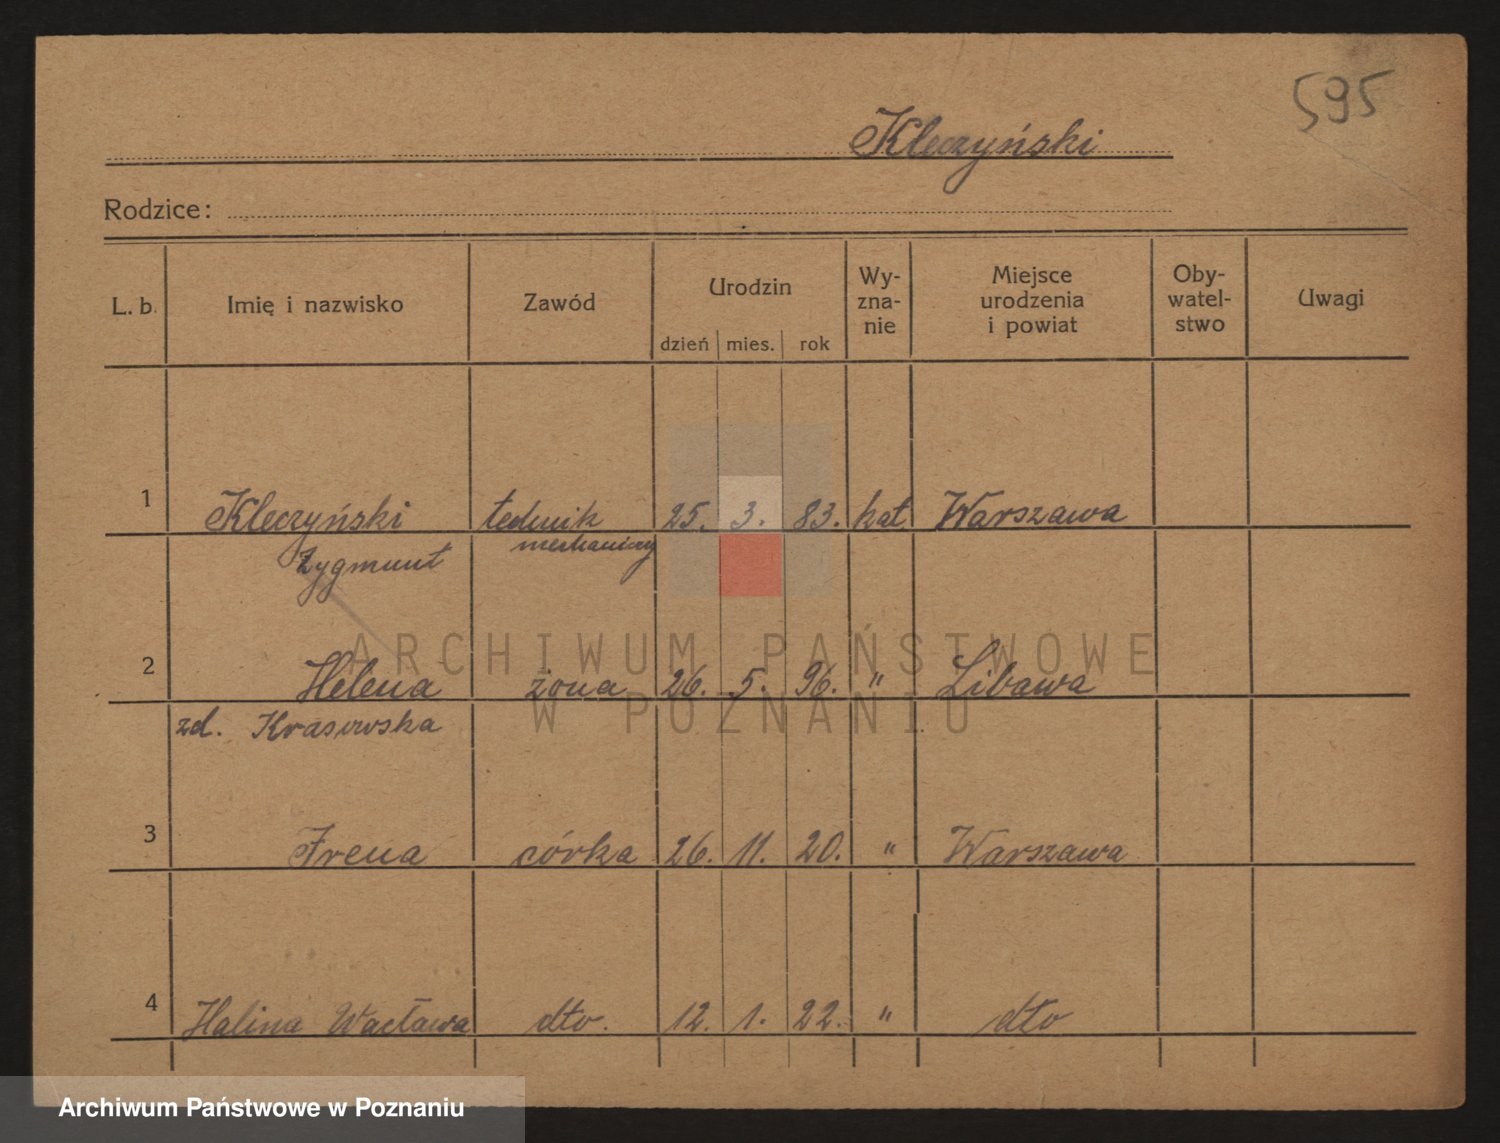 595
Kleczyński
Rodzice:
L. b. Imię i nazwisko Zawód Urodzin Wy- Miejsce Oby- Uwagi
zna- urodzenia watel-
nie i powiat stwo
dzień mies. rok
1 Kleczyński technik 25. 3. 83. kat Warszawa
Zygmunt mechaniczny
2 Helena żona 26. 5. 96. " Libawa
zd. Krasowska
3 Irena córka 26. 11. 20. " Warszawa
4 Halina Wacława dto. 12. 1. 22. " dto
ARCHIWUM PAŃSTWOWE
W POZNANIU
Archiwum Państwowe w Poznaniu